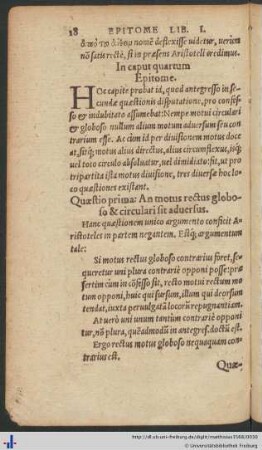 18 EPITOME LIB. I.
nomē deflexisse uidetur, uerùm
nō satis rectè, si in præsens Aristoteli credimus.
In caput quartum
Epitome.
HOc capite probat id, quod antegresso in se-
cundæ quæstionis disputatione, pro confes-
so & indubitato assumebat: Nempe motui circulari
& globoso nullum alium motum aduersum seu con
trarium esse. Ac cùm id per diuisionem motus doce
at, sitq; motus alius directus, alius circumflexus, isq;
uel toto circulo absoluatur, uel dimidiato: fit, ut pro
tripartita ista motus diuisione, tres diuersæ hoc lo-
co quæstiones existant.
Quæstio prima: An motus rectus globo-
so & circulari sit aduersus.
Hanc quæstionem unico argumento conficit A-
ristoteles in partem negantem. Estq; argumentum
tale:
Si motui rectus globoso contrarius foret, se-
queretur uni plura contrariè opponi posse: præ
sertim cùm in cōfesso sit, recto motui rectum mo
tum opponi, huic qui sursum, illum qui deorsum
tendat, iuxta peruulgatā locorū repugnantiam.
At uerò uni unum tantùm contrariè opponi-
tur, nō plura, quēadmodū in antegres. doctū est.
Ergo rectus motus globoso nequaquam con-
trarius est.
Quæ-
http://dl.ub.uni-freiburg.de/diglit/
© Universitätsbibliothek Freiburg